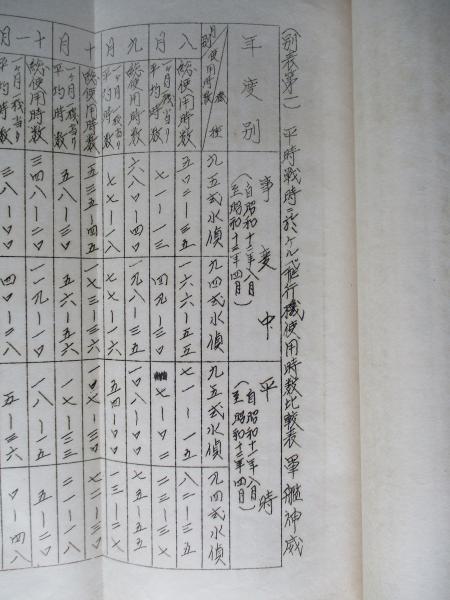 (別表第二) 平時戦時ニ於ケル飛行機使用時数比較表 軍艦神威
年度別 事変中 (自昭和十二年八月 至昭和十三年四月) 平時 (自昭和十一年八月 至昭和十二年四月)
月別 使用時数 機種 九五式水偵 九四式水偵 九五式水偵 九四式水偵
八月 総使用時数 五〇二-三五 一六六-五五 七一-一五 八二-三五
一ヶ月一機当リ平均時数 七一-一三 七-〇〇
九月 総使用時数 六八〇-四〇 一九八-三〇 一〇八-〇〇 七五-五五
一ヶ月一機当リ平均時数 七七-一八 七七-一六 五四-〇〇 一三-二七
十月 総使用時数 五三五-四五 一七三-三六 七二-三〇
一ヶ月一機当リ平均時数 五八-三〇 五六-五五 一七-三三 二一-一八
十一月 総使用時数 三四八-一〇 一一九-一〇 一八-一五 五-二〇
一ヶ月一機当リ平均時数 三八-〇〇 四〇-二八 五-三六 〇-四八